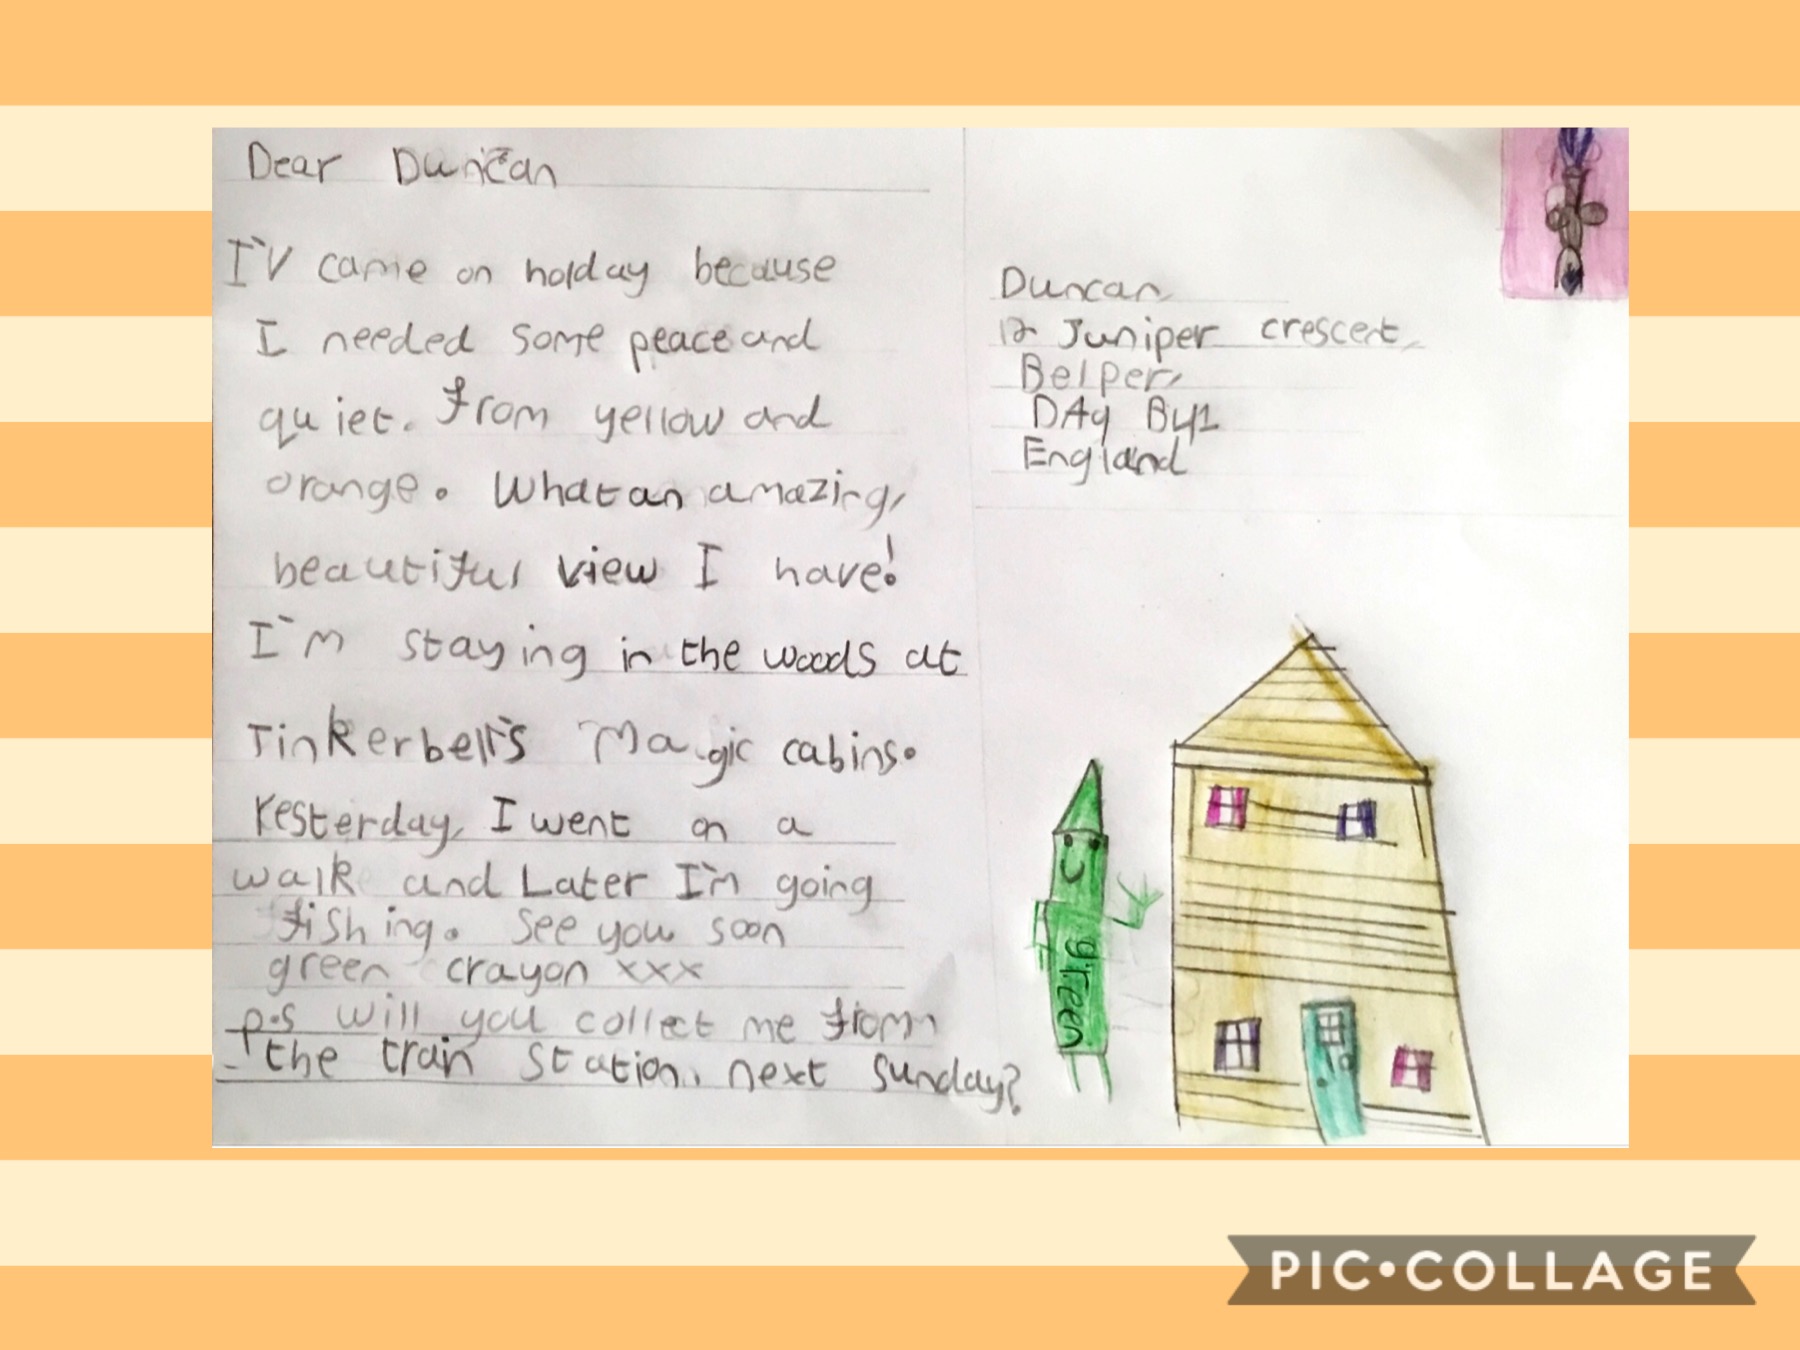 Dear Duncan
I'V came on holday because
I needed some peace and
quiet. from yellow and
orange. What an amazing,
beautiful view I have!
I'm staying in the woods at
Tinkerbell's Magic cabins.
Yesterday, I went on a
walk and Later I'm going
fishing. See you soon
green crayon xxx
p.s will you collect me from
the train station, next Sunday?
Duncan,
12 Juniper crescent,
Belper,
DA9 B41
England
green
PIC•COLLAGE